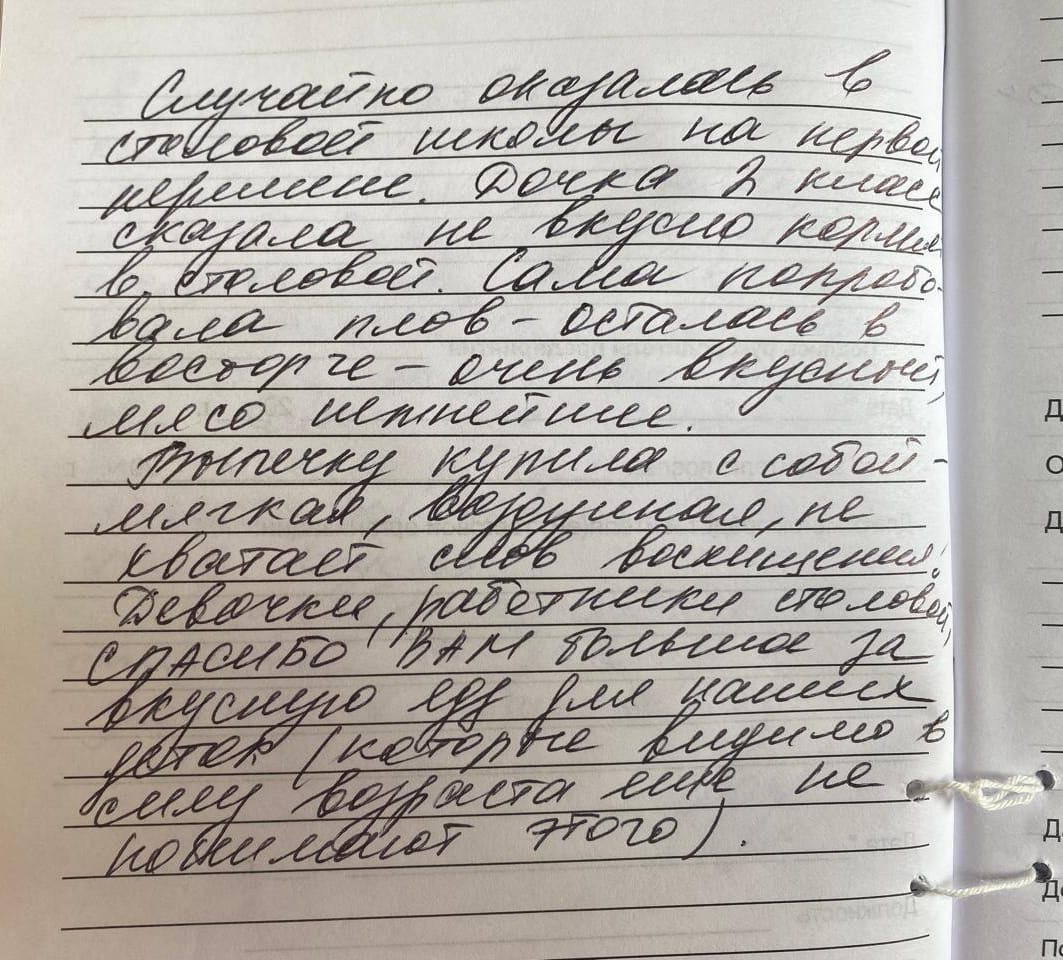 Случайно оказалась в
столовой школы на первой
перемене. Дочка 2 класс
сказала не вкусно кормят
в столовой. Сама попробо-
вала плов - осталась в
восторге - очень вкусный,
мясо нежнейшее.
Выпечку купила с собой -
мягкая, воздушная, не
хватает слов восхищения!
Девочки, работники столовой,
СПАСИБО ВАМ большое за
вкусную еду для наших
деток (которые видимо в
силу возраста еще не
понимают этого).
Дата
Должность
Д
О
Д
Д
До
По